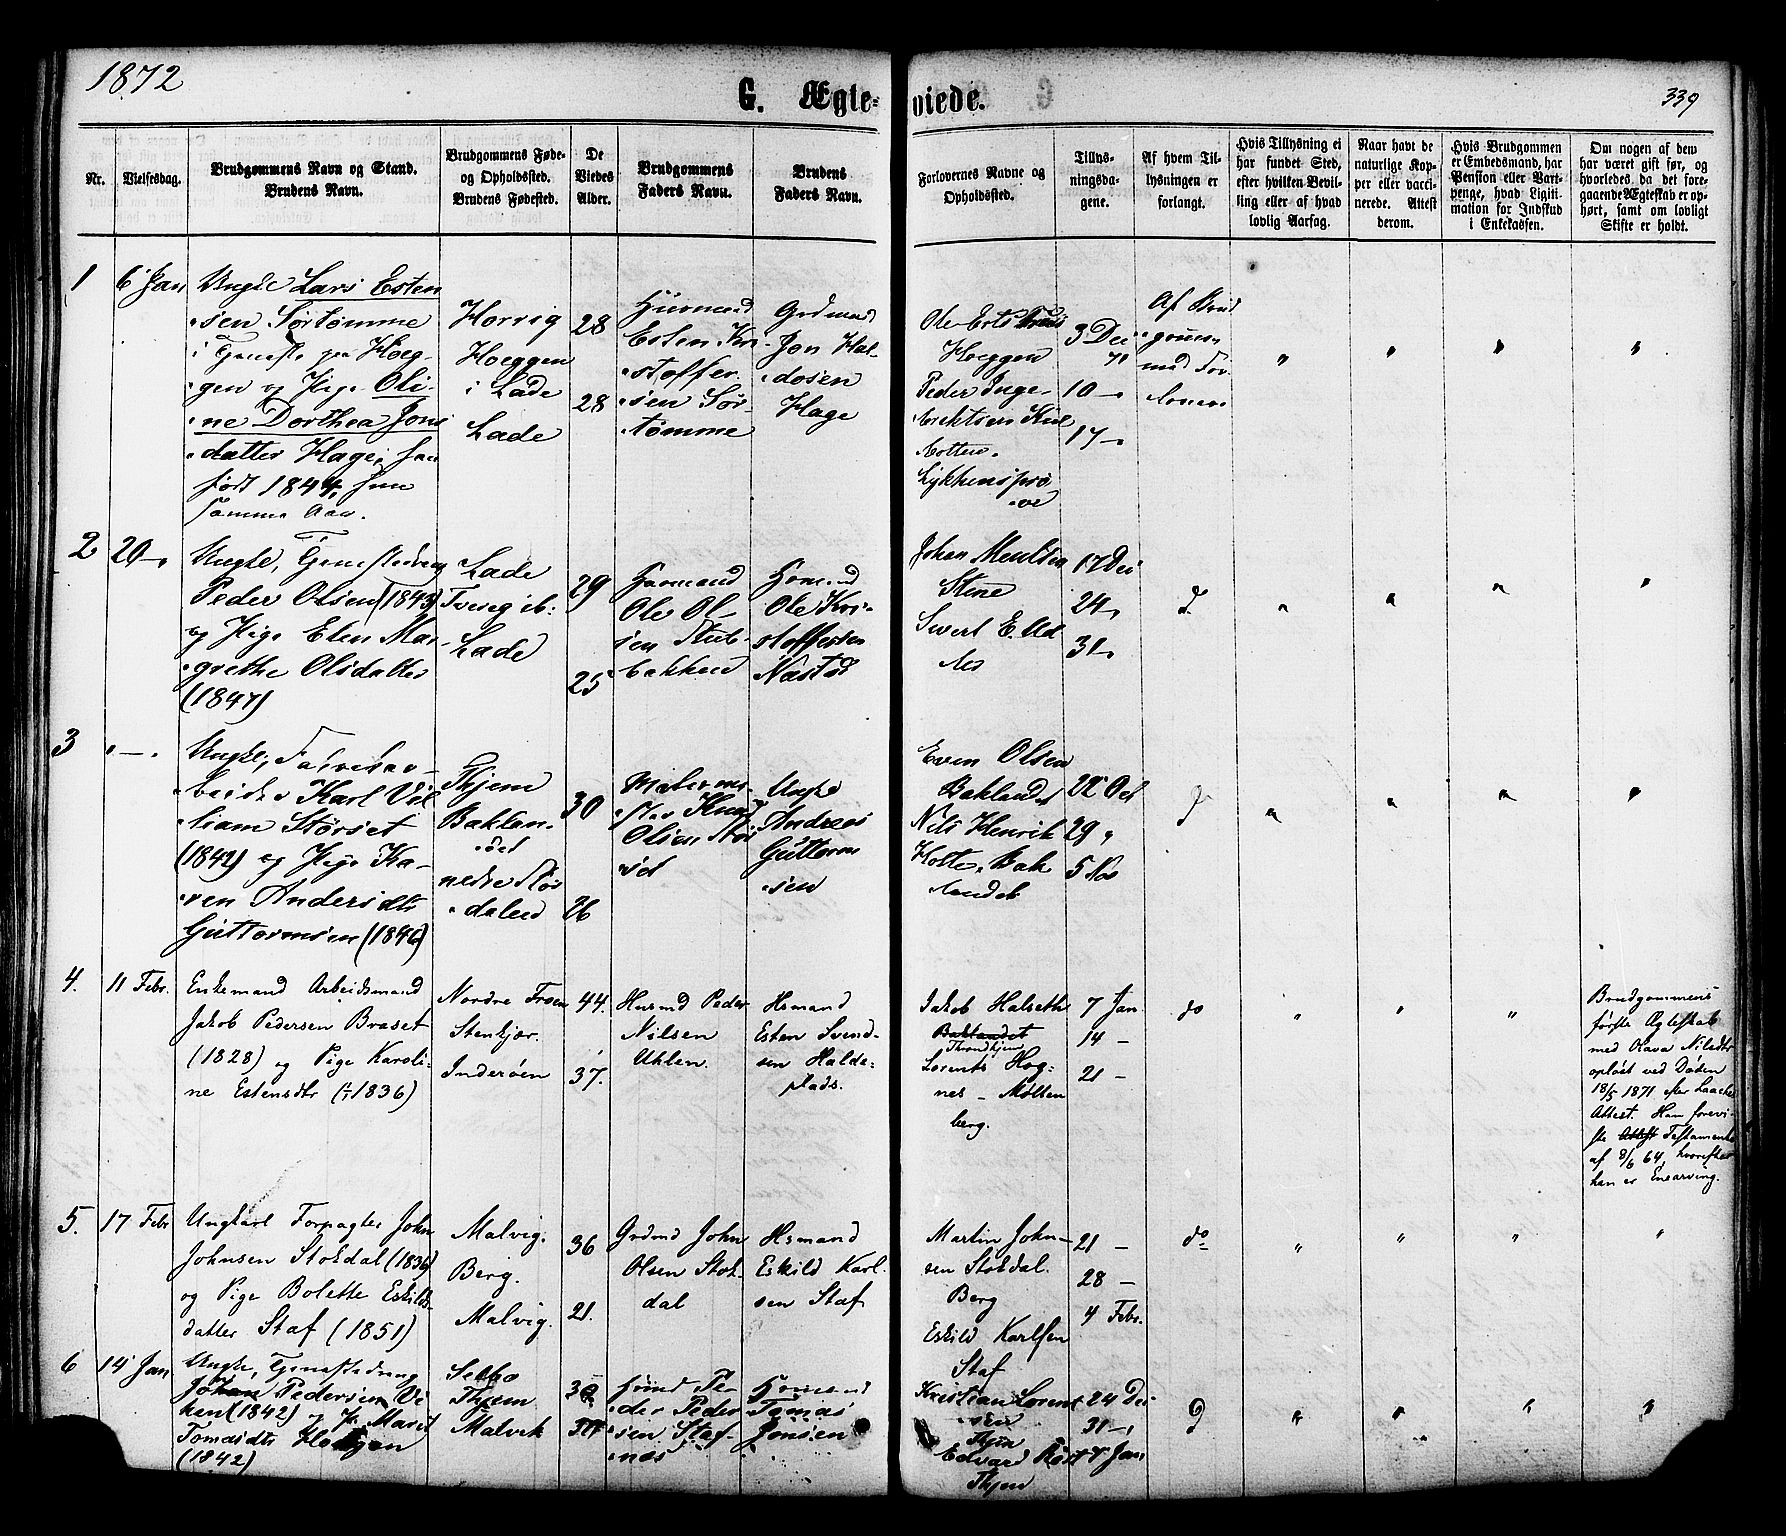 1872
G. Ægte-
viede.
339
Nr.
Vielsesdag.
Brudgommens Navn og Stand.
Brudens Navn.
Brudgommens Føde-
og Opholdssted.
Brudens Fødested.
De
Viedes
Alder.
Brudgommens
Faders Navn.
Brudens
Faders Navn.
Forlovernes Navne og
Opholdssted.
Tillys-
ningsda-
gene.
Af hvem Til-
lysningen er
forlangt.
Hvis Tillysning ei
har fundet Sted,
efter hvilken Bevil-
ling eller af hvad
lovlig Aarsag.
Naar havt de
naturlige Kop-
per eller vacci-
nerede. Attest
derom.
Hvis Brudgommen
er Embedsmand, har
Pension eller Vart-
penge, hvad Ligiti-
mation for Indskud
i Enkekassen.
Om nogen af dem
har været gift før, og
hvorledes da det fore-
gaaende Ægteskab er op-
hørt, samt om lovligt
Skifte er holdt.
1
6 Jan
Ungk Lars Esten
sen Sørtømme
i Tjeneste paa Hoeg-
gen og Pige Oli-
ne Dorthea Jons
datter Hage, han
født 1844, hun
samme Aar.
Horrig
Hoeggen
i Lade
Lade
28
28
Huusmand
Esten Kri-
stoffer
sen Sør-
tømme
Grdmand
Jon Hal-
dosen
Hage
Hoeggen
Peder Inge-
brektsen
Lykkenspрø
ve
3 Dec
71
10 —
17 —
Af Brud
gommen
med For
lover
"
"
"
"
2
20 —
Ungk, Tjenestedreng
Peder Olsen (1843)
og Pige Elen Mar-
grethe Olsdatter
(1847)
Lade
Lade
29
25
Husmand
Ole Ol-
sen Stub-
bakken
Husmand
Ole Kri-
stoffersen
Nastad
Johan
Stine
Sivert E.
17 Dec
24 "
31 "
d
"
"
"
"
3
" — "
Ungk, Farvehar-
beider Karl Vil
liam Størset
(1842) og Pige Ka-
ren Andersdtr
Guttormsen (1846)
Thjem
Baklan-
det
nedre Stør
dalen
30
26
Knud
Olsen Stør
set
Ungk
Andreas
Guttorm
sen
Even Olsen
Baklandet
Nils Henrik
Holte, Bak
landet
22 Oct
29 "
5 Nov
d
"
"
"
"
4.
11 Febr.
Enkemand Arbeidsmand
Jakob Pedersen Braset
(1828) og Pige Karoli-
ne Estensdtr (1836)
Nordre Froen
Stenkjær.
Inderøen
44.
37.
Husmd Peder
Nilsen
Uhlen.
Hsmand
Esten Svend-
sen Halde-
plads.
Jakob Halseth
Baklandet
Throndhjem
Lorents Hog-
nes – Møllen
berg.
7 Jan
14 –
21 –
do
"
"
"
Brudgommens
første Ægteskab
med Olava Nilsdtr
opløst ved Døden
18/5 1871 efter
Attest. Han forevi-
ste Attest Testamente
af 8/6 64, hvorefter
han er Enearving.
5.
17 Febr
Ungkarl Forpagter John
Johnsen Stokdal (1836)
og Pige Bolette Eskilds-
datter Staf (1851)
Malvig.
Berg.
Malvig.
36
21.
Grdmd John
Olsen Stok
dal
Hsmand
Eskild Karl
sen Staf
Martin John-
sen Stokdal.
Berg
Eskild Karlsen
Staf
21 –
28 –
4 Febr.
do
"
"
"
"
6
14 Jan
Ungk, Tjenestedreng
Johan Pedersen Vi
ken (1842) og P. Marit
Tomasdtr
(1842)
Selbo
Thjem
Malvik
30
Husmd Pe-
der Peder
sen Staf-
nes
Husmand
Tomas
Jonsen
Kristian Loren
sen
Thjem
Edvard
Thjem
24 Dec
31 —
7 Jan
d
"
"
"
"